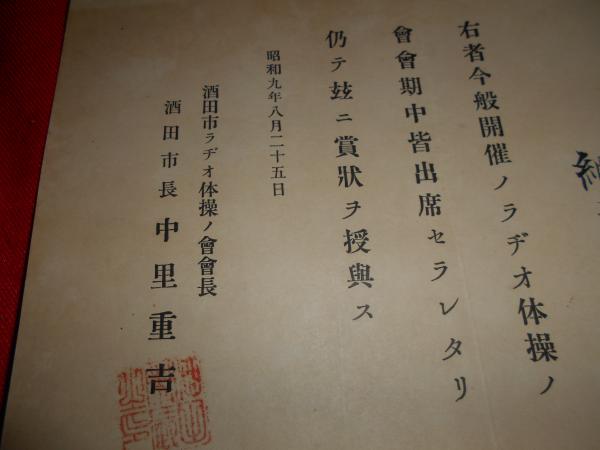 右者今般開催ノラヂオ体操ノ
會會期中皆出席セラレタリ
仍テ玆ニ賞狀ヲ授與ス
昭和九年八月二十五日
酒田市ラヂオ体操ノ會會長
酒田市長 中里重吉